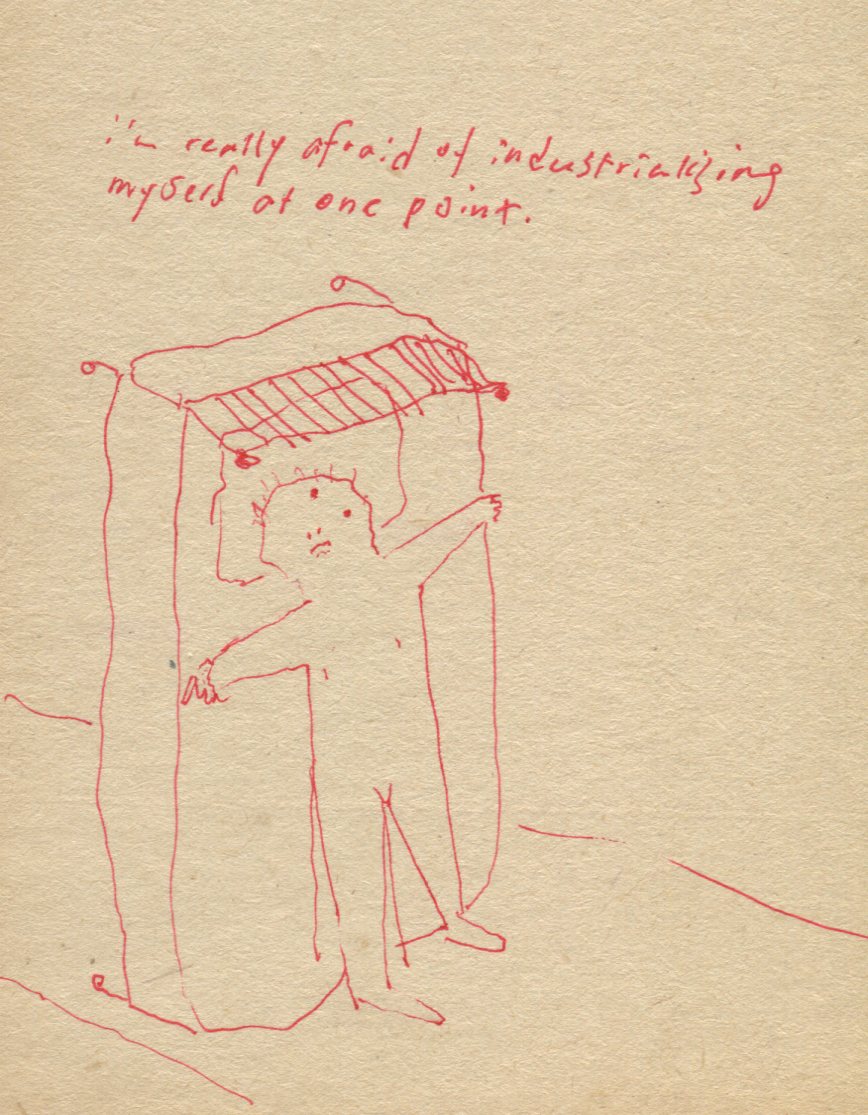 i'm really afraid of industrializing
myself at one point.